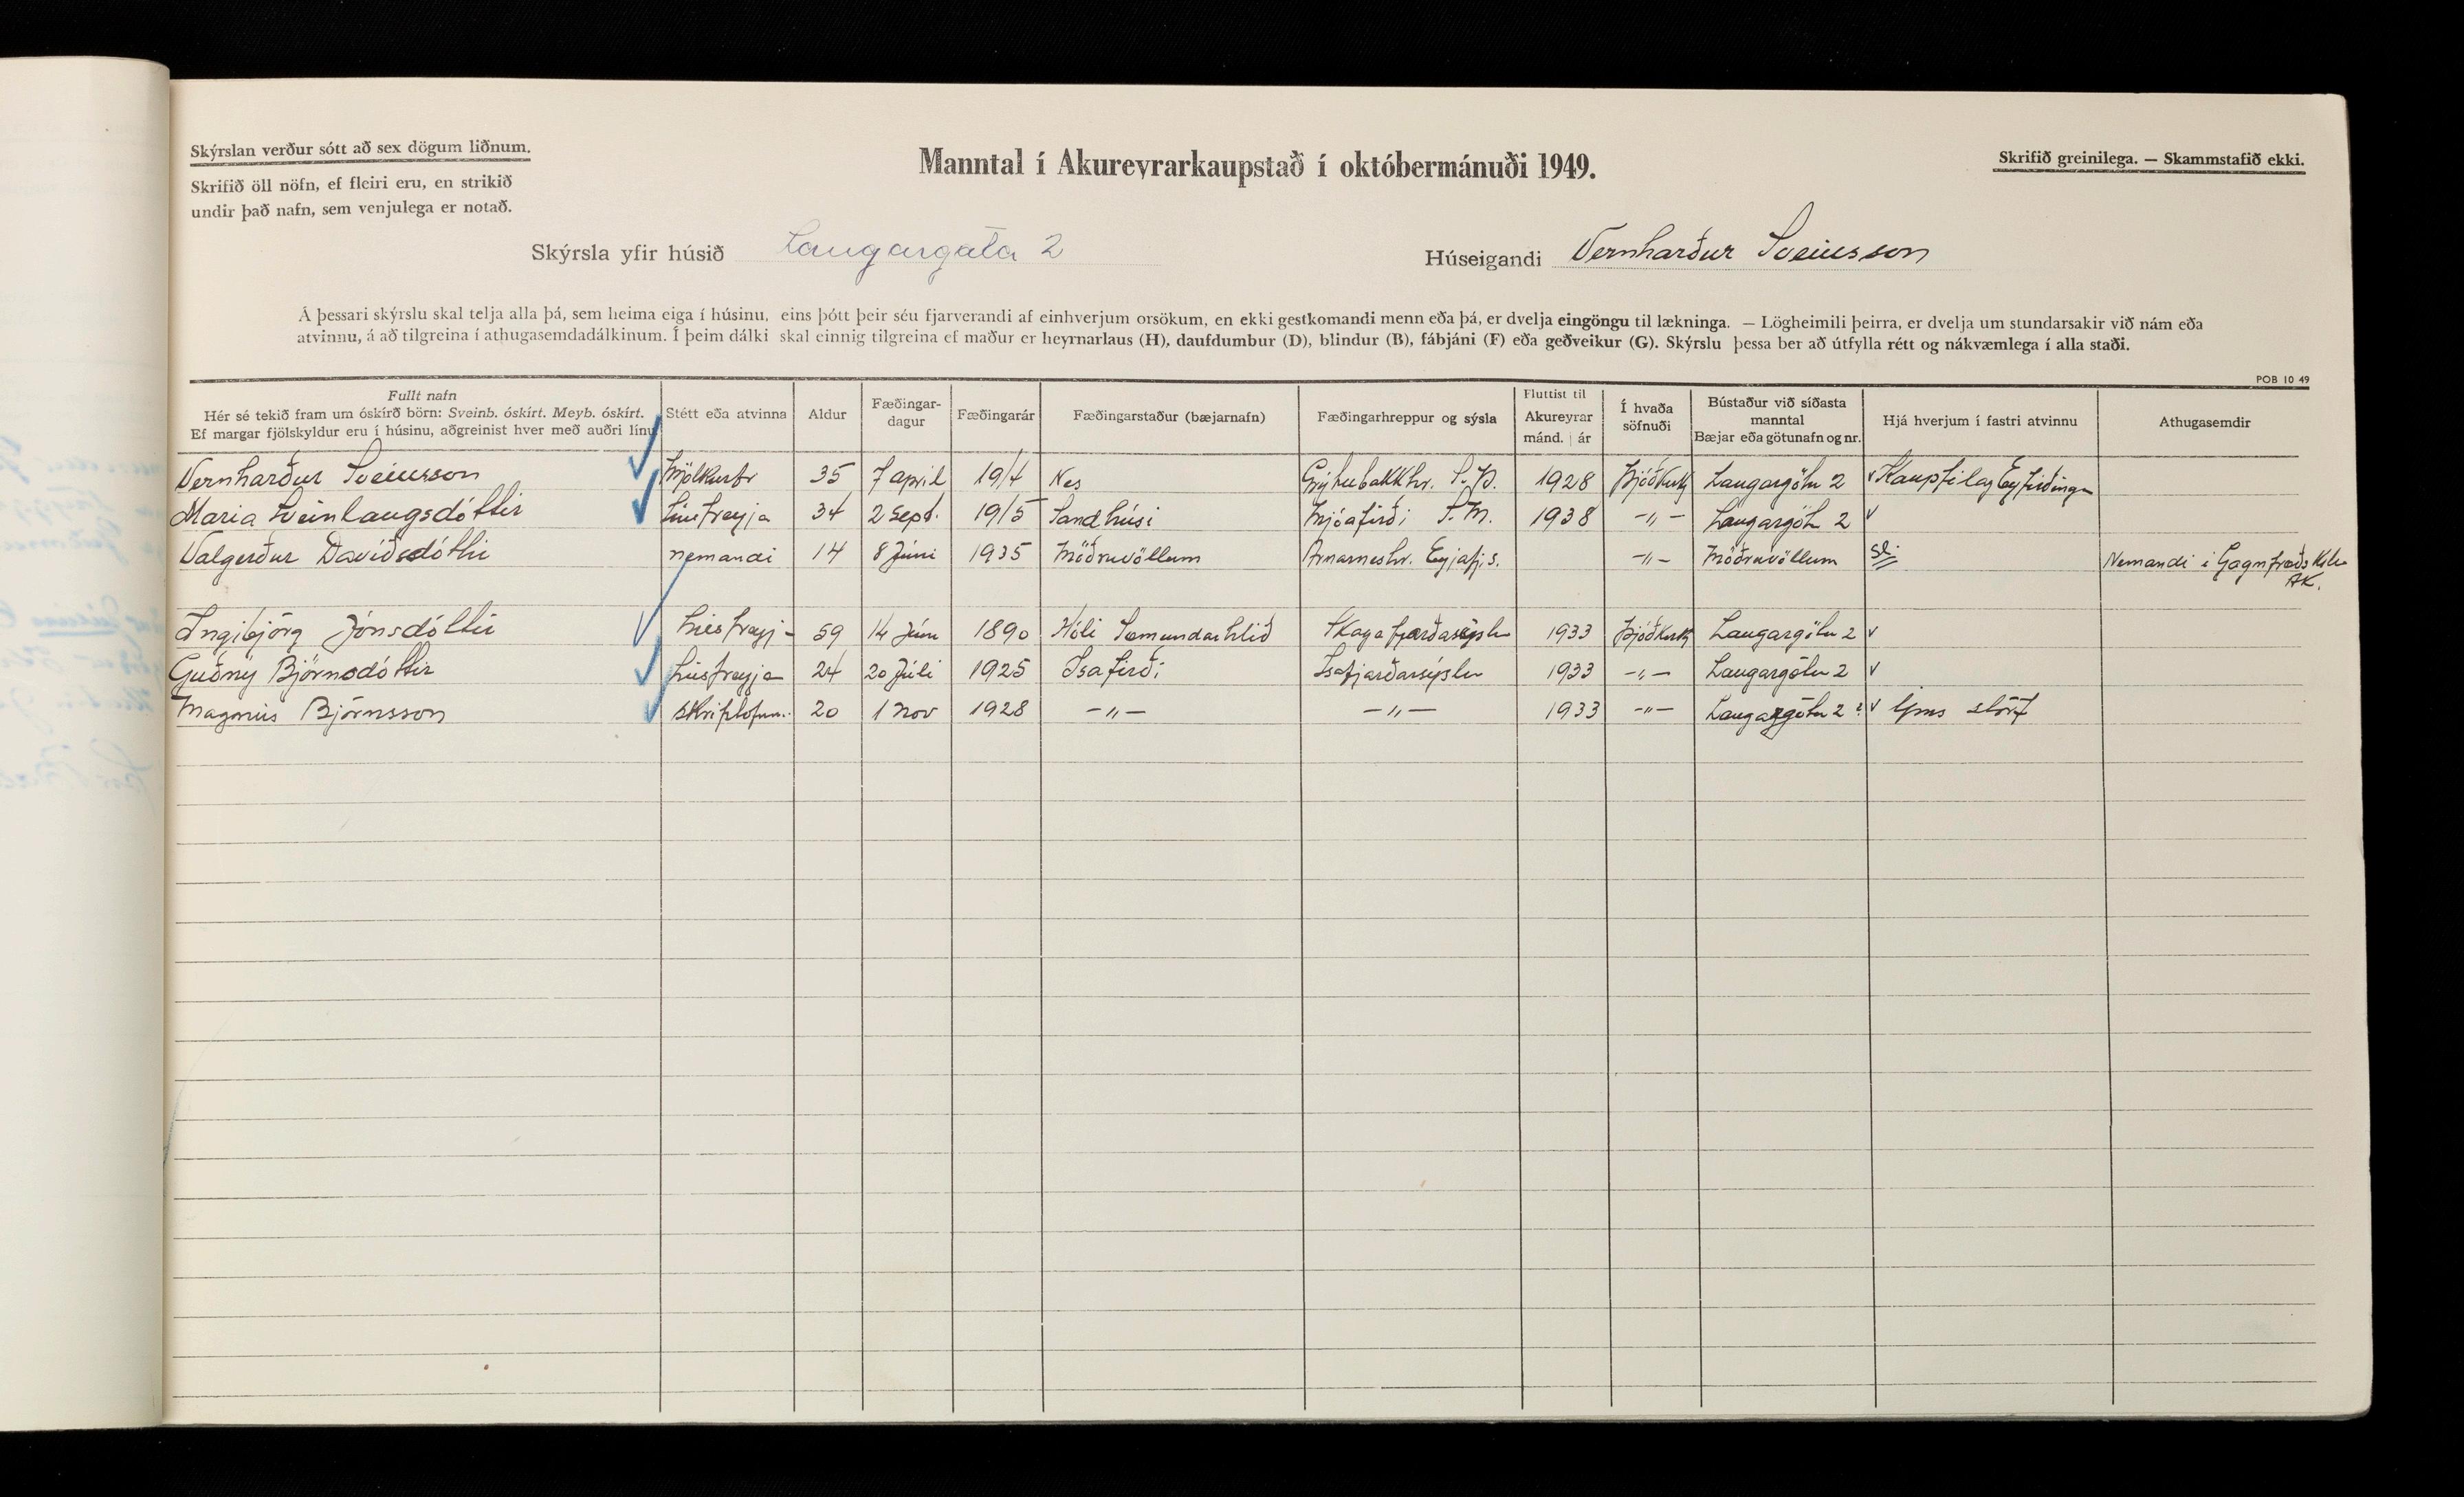 Skýrslan verður sótt að sex dögum liðnum.
Skrifið öll nöfn, ef fleiri eru, en strikið
undir það nafn, sem venjulega er notað.
Manntal í Akureyrarkaupstað í októbermánuði 1949.
Skrifið greinilega. — Skammstafið ekki.
Skýrsla yfir húsið Laugargata 2
Húseigandi Vernharður Sveinsson
Á þessari skýrslu skal telja alla þá, sem heima eiga í húsinu, eins þótt þeir séu fjarverandi af einhverjum orsökum, en ekki gestkomandi menn eða þá, er dvelja eingöngu til lækninga. — Lögheimili þeirra, er dvelja um stundarsakir við nám eða
atvinnu, á að tilgreina í athugasemdadálkinum. Í þeim dálki skal einnig tilgreina ef maður er heyrnarlaus (H), daufdumbur (D), blindur (B), fábjáni (F) eða geðveikur (G). Skýrslu þessa ber að útfylla rétt og nákvæmlega í alla staði.
POB 10 49
Fullt nafn
Hér sé tekið fram um óskírð börn: Sveinb. óskírt. Meyb. óskírt.
Ef margar fjölskyldur eru í húsinu, aðgreinist hver með auðri línu
Stétt eða atvinna
Aldur
Fæðingar-
dagur
Fæðingarár
Fæðingarstaður (bæjarnafn)
Fæðingarhreppur og sýsla
Fluttist til
Akureyrar
mánd. | ár
Í hvaða
söfnuði
Bústaður við síðasta
manntal
Bæjar eða götunafn og nr.
Hjá hverjum í fastri atvinnu
Athugasemdir
Vernharður Sveinsson Mjólkurfr 35 7 apríl 1914 Nes Grýtubakkhr. S.Þ. 1928 Þjóðkirkj Laugargötu 2 v Kaupfélag Eyfirðinga
Maria Sveinlaugsdóttir húsfreyja 34 2 Sept. 1915 Sandhúsi Mjóafirði S.M. 1938 -"- Laugargöt 2 v
Valgerður Davíðsdóttir nemandi 14 8 Júni 1935 Möðruvöllum Arnarneshr. Eyjafj.s. -"- Möðruvöllum Nemandi i Gagnfræðskóla
AK.
Ingibjörg Jónsdóttir húsfreyj- 59 14 Júni 1890 Hóli Sæmundarhlíð Skagafjarðasýslu 1933 Þjóðkirkj Laugargötu 2 v
Guðný Björnsdóttir húsfreyja 24 20 Júlí 1925 Isafirði Isafjarðarsýslu 1933 -"- Laugargötu 2 v
Magnús Björnsson skrifstofum. 20 1 Nov 1928 -"- -"- 1933 -"- Laugargötu 2 v Ýms störf